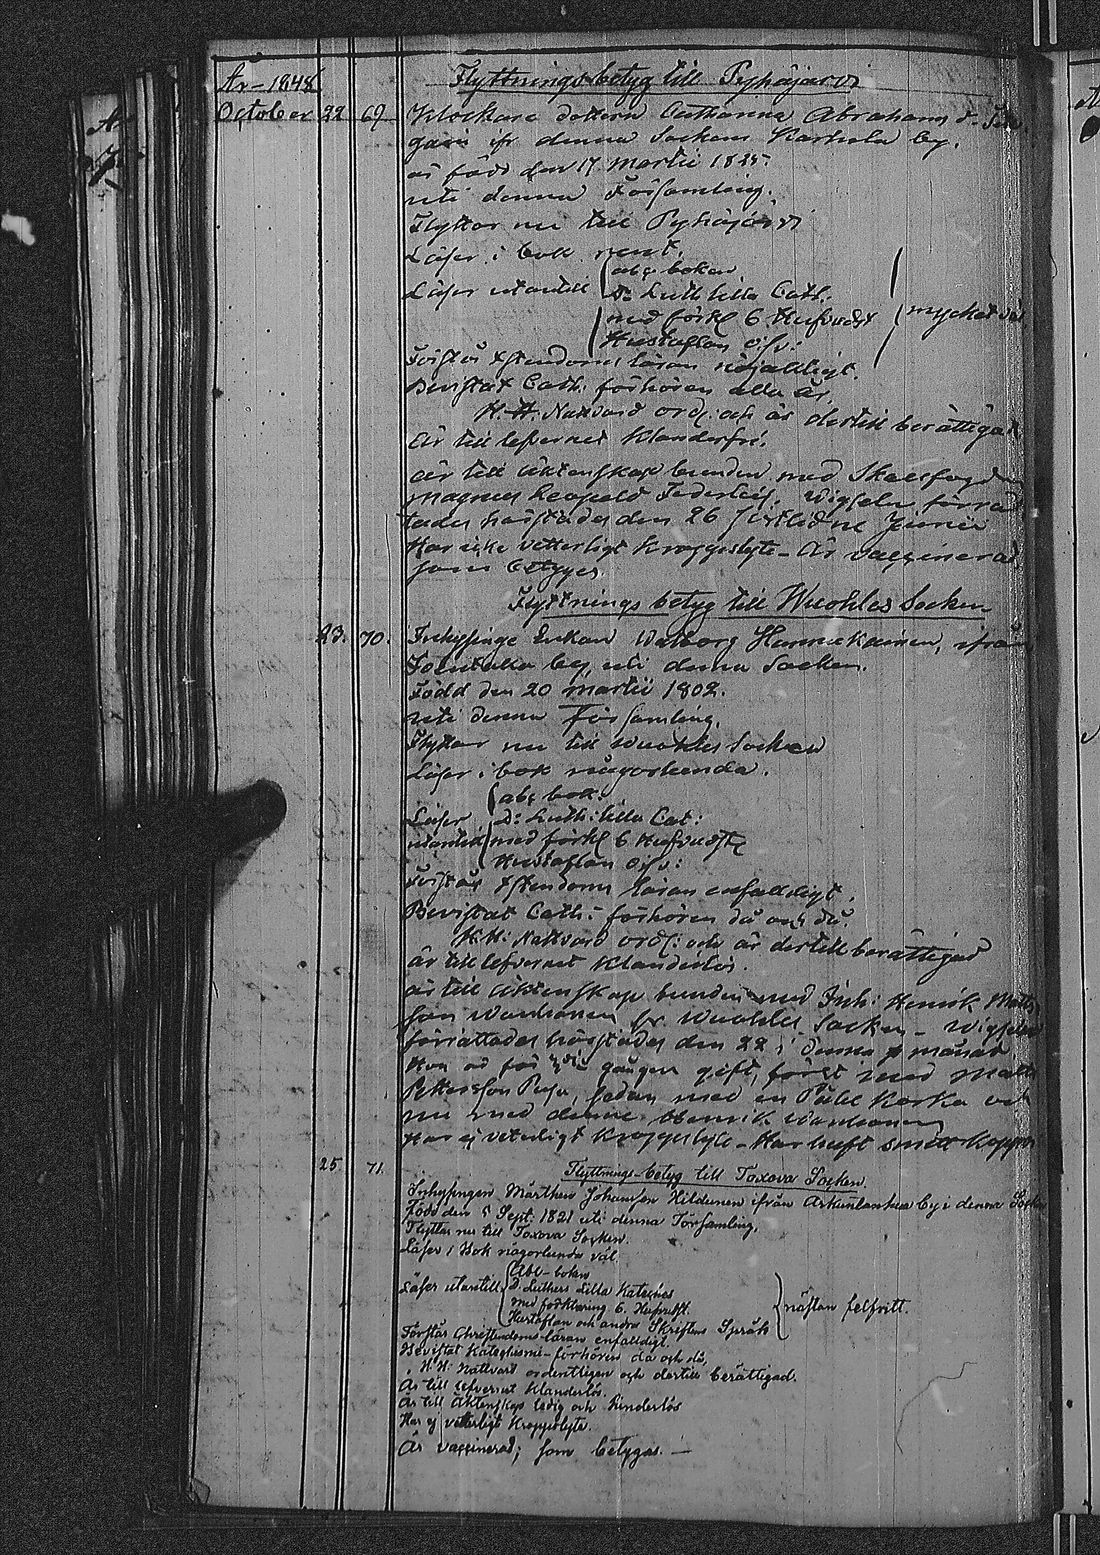 År - 1848 Flyttnings betyg till Pyhäjärvi
October 22 69 Klockare dottern Catharina Abrahams d.
ifr denna Sockens Karkola by.
är född den 17 Martii 1825
uti denna Församling.
Flyttar nu till Pyhäjärvi
Läser i bok rent.
abc boken
Läser utantill D. Luth lilla Cath. mycket väl
med förkl 6 Hufvudst
Hustaflan o.s.v:
Förstår Xstendoms läran nöjaktligt
Bevistat Cath: förhören alla år,
H. H. Nattvard ord. och är dertill berättigad
är till lefvernet klanderfri.
är till äktenskap bunden med
Magnus Leopold Federley. Vigseln förrät
tades härstädes den 26 sistledne Junii
Har icke vetterligt kroppslyte - är vaccinerad
som betyges.
Flyttnings betyg till Wuoles Socken
23. 70. Inhysinge Enkan Walborg Hannukainen, ifrån
by, uti denna Socken.
Född den 20 Martii 1802.
uti denna Församling.
Flyttar nu till Wuoles Socken
Läser i bok någorlunda.
abc bok:
Läser D: Luth: lilla Cat:
utantill med förkl 6 Hufvudst
Hustaflan o.s.v:
Förstår Xstendoms läran enfalldigt.
Bevistat Cath: förhören då och då.
H. H: Nattvard ord: och är dertill berättigad
är till lefvernet klanderlös.
är till äktenskap bunden med Inh: Henrik Matts
son fr. Wuoles Socken - Vigseln
förrättades härstädes den 22 i denna månad
Hon är för gången gift, först med Matts
Pettersson sedan med en Påhl Korka och
nu med denne Henrik
Har ej veterligt kroppslyte - Har haft smitt koppor
25 71. Flyttnings-betyg till Toxova Socken.
Inhysingen Matthew Johansson Hildenen ifrån by i denna Socken
Född den 5 Sept. 1821 uti denna Församling.
Flyttar nu till Toxova Socken.
Läser i Bok någorlunda väl.
Abc-boken
Läser utantill D. Luthers Lilla Kateches nästan felfritt.
med förklaring 6. Hufvudst.
Hustaflan och andra Skriftens Språk
Förstår Christendoms-läran enfalldigt.
Bevistat Katechismi-förhören då och då,
H. H: Nattvard ordentligen och dertill berättigad.
Är till lefvernet klanderlös.
Är till äktenskap ledig och hinderlös
Har ej vetterligt kroppslyte.
Är vaccinerad; som betygas. -